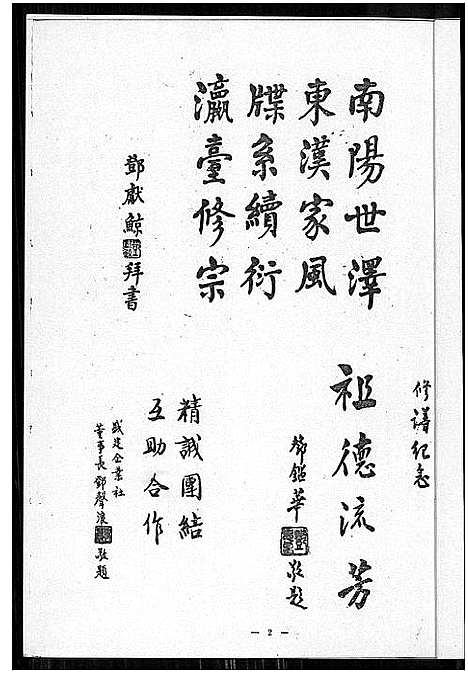 南陽世澤
東漢家風
牒系續衍
瀛臺修宗
鄧獻鯨 拜書
修譜紀念
祖德流芳
鄧鎰華 敬題
精誠團結
互助合作
盛建企業社
董事長鄧聲浪 敬題
— 2 —